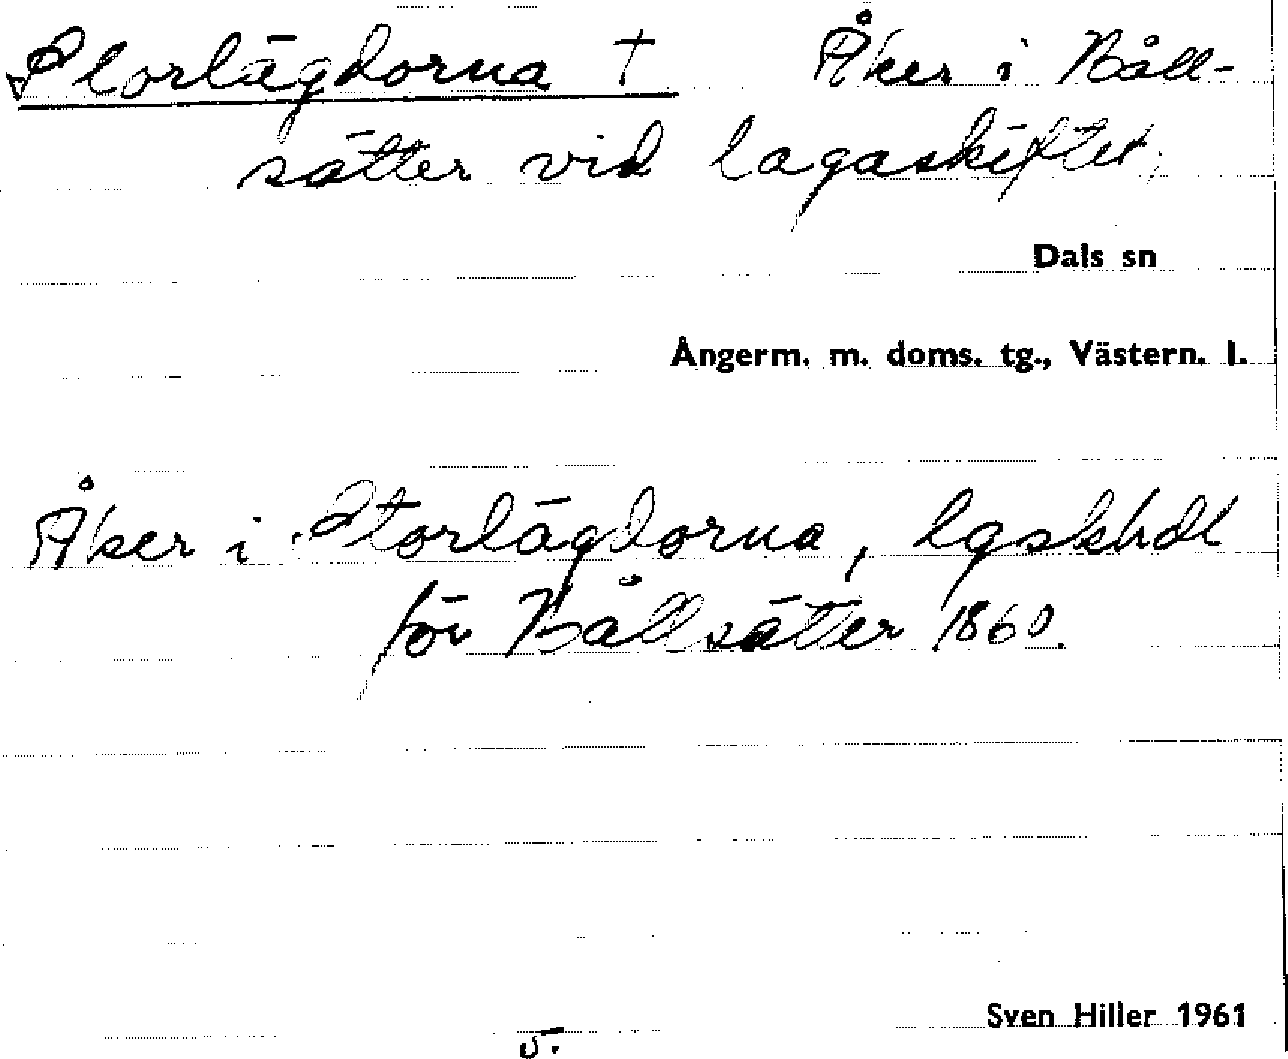 Storlägdorna † Åker i Båll-
sätter vid lagaskiftet,
Dals sn
Ångerm. m. doms. tg., Västern. l.
Åker i Storlägdorna, lgskhdl
för Bållsätter 1860.
Sven Hiller 1961
5.